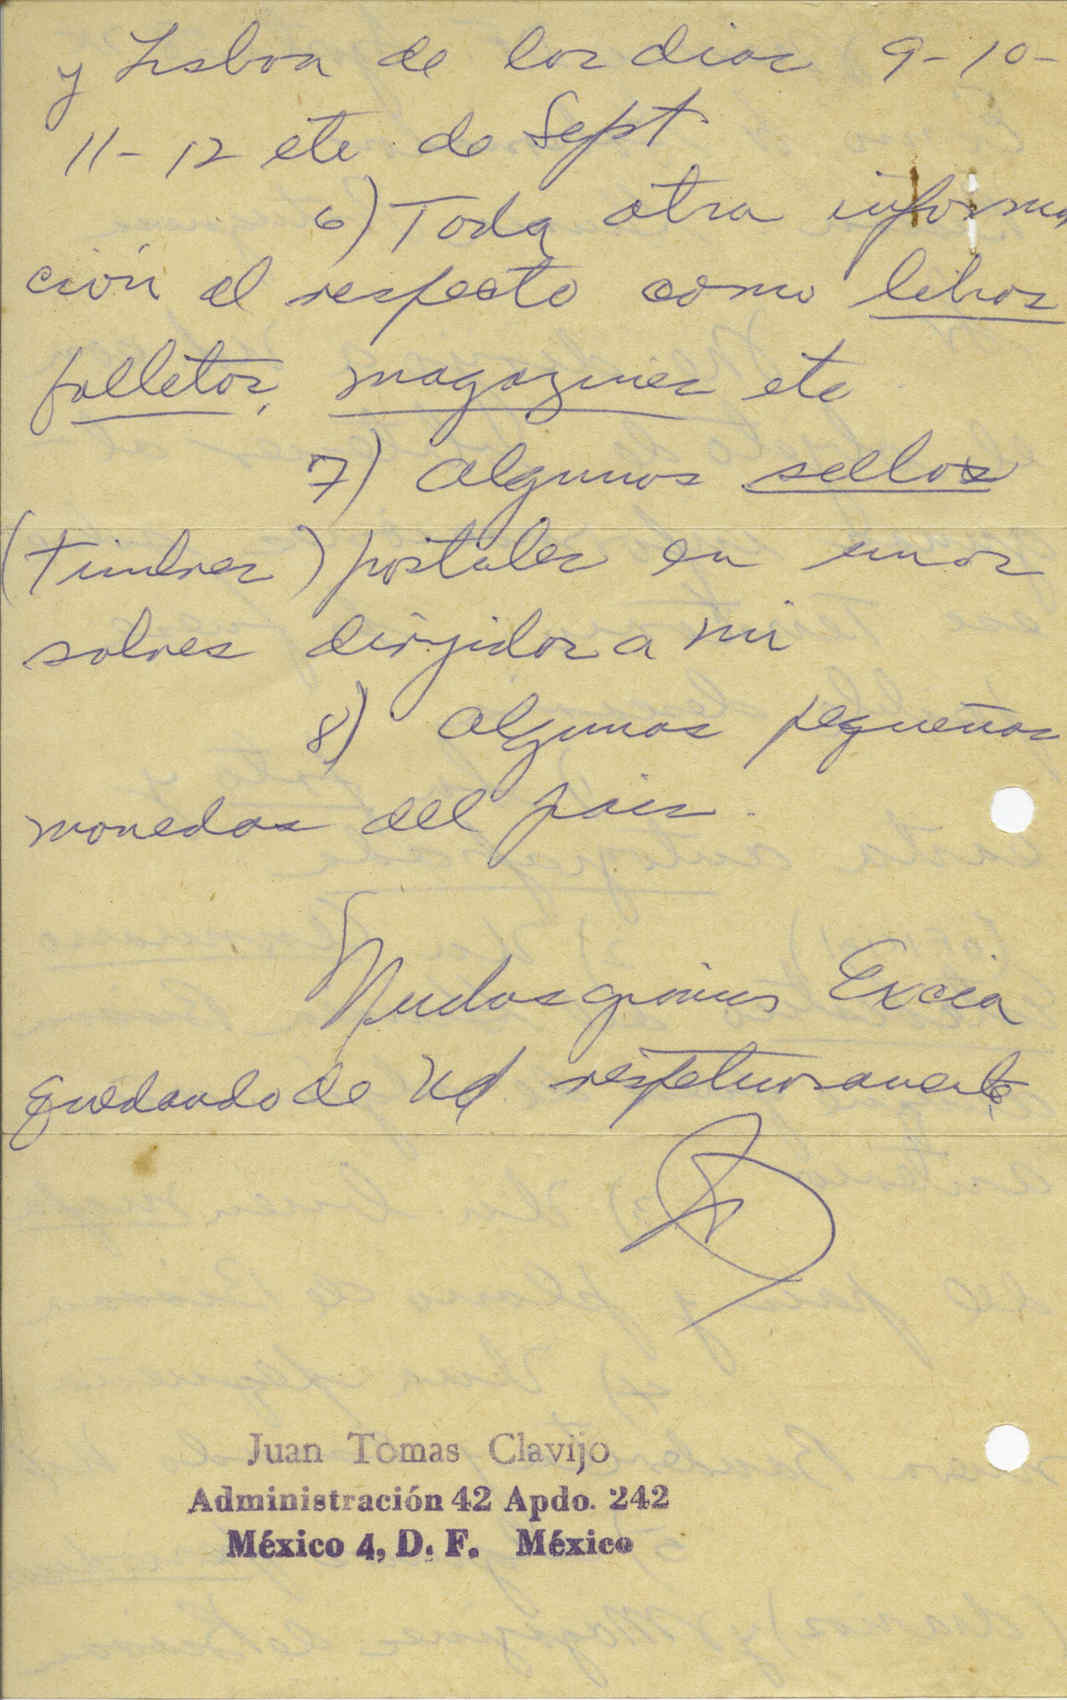 y Lisboa de los dias 9-10-
11-12 etc. de Sept.
6) Toda otra informa
ción al respecto como libros
folletos, magazines etc
7) algunos sellos
(timbres) postales en unos
sobres dirijidos a mi
8) algunas pequeñas
monedas del pais.
Muchas gracias Excia
quedando de Ud respetuosamente,
Juan Tomas Clavijo
Administración 42 Apdo. 242
México 4, D. F. México